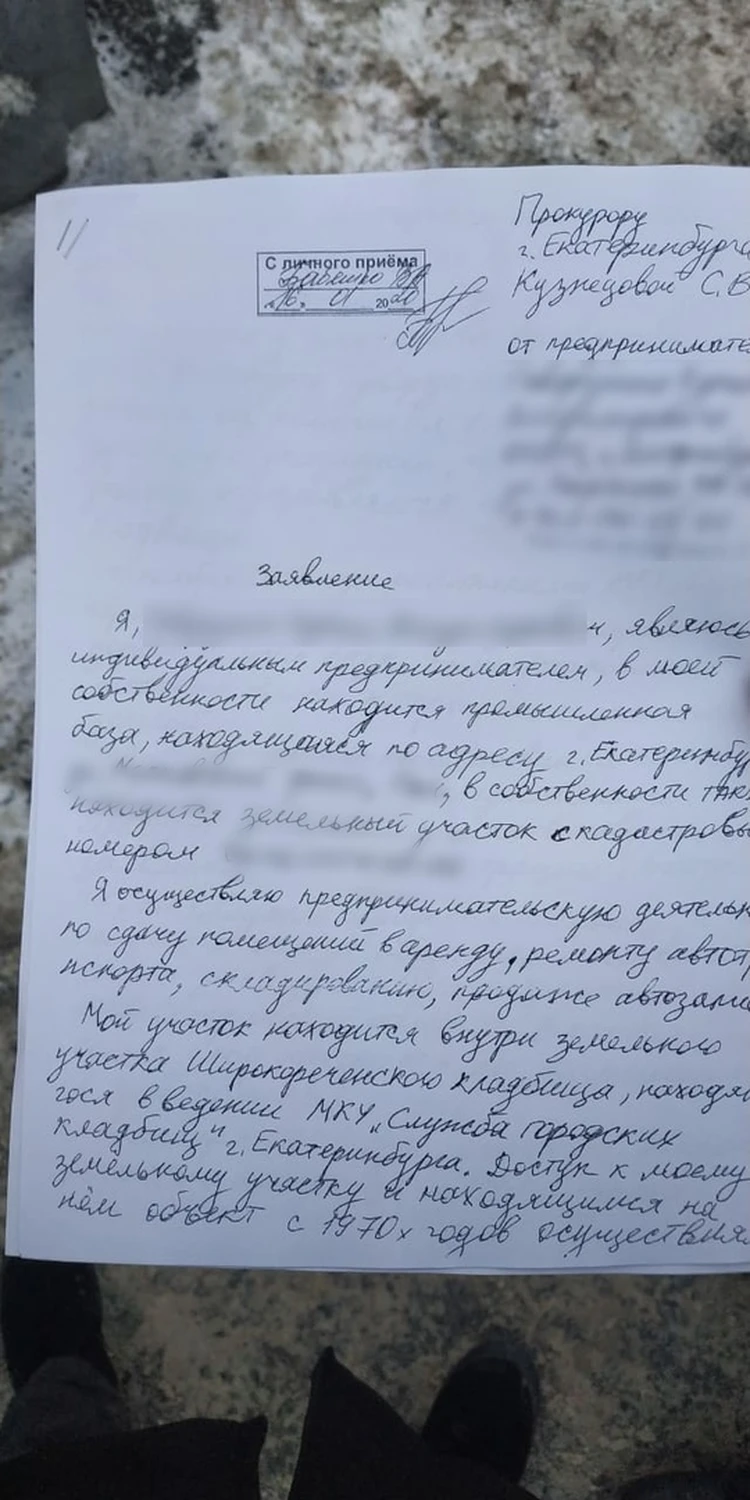 1/
Прокурору
г. Екатеринбурга
Кузнецовой С.В
С личного приёма
"16" 01 2020
от предпринимате
Заявление
Я, ч, являюсь
индивидуальным предпринимателем, в моей
собственности находится промышленная
база, находящаяся по адресу г. Екатеринбу
, в собственности так
находится земельный участок с кадастровы
номером
Я осуществляю предпринимательскую деятельн
по сдачу помещений в аренду, ремонту автот
нспорта, складированию, продаже автозапч
Мой участок находится внутри земельного
участка Широкореченского кладбища, находя
гося в ведении МКУ „Служба городских
кладбищ" г. Екатеринбурга. Доступ к моему
земельному участку и находящимся на
нём объект с 1970х годов осуществля